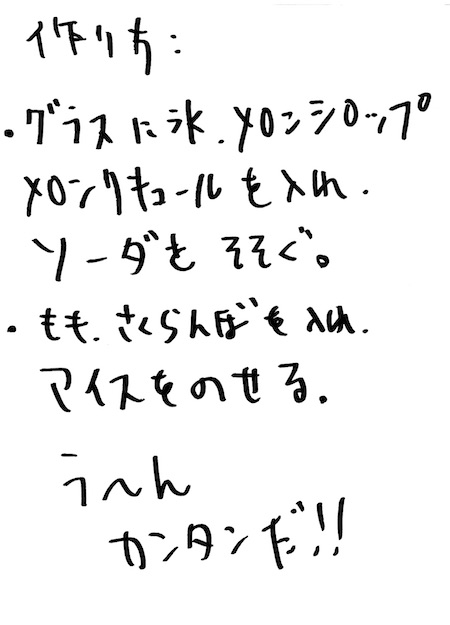 作り方:
・グラスに氷、メロンシロップ
メロンリキュールを入れ、
ソーダをそそぐ。
・もも、さくらんぼを入れ、
アイスをのせる。
う〜ん
カンタンだ!!